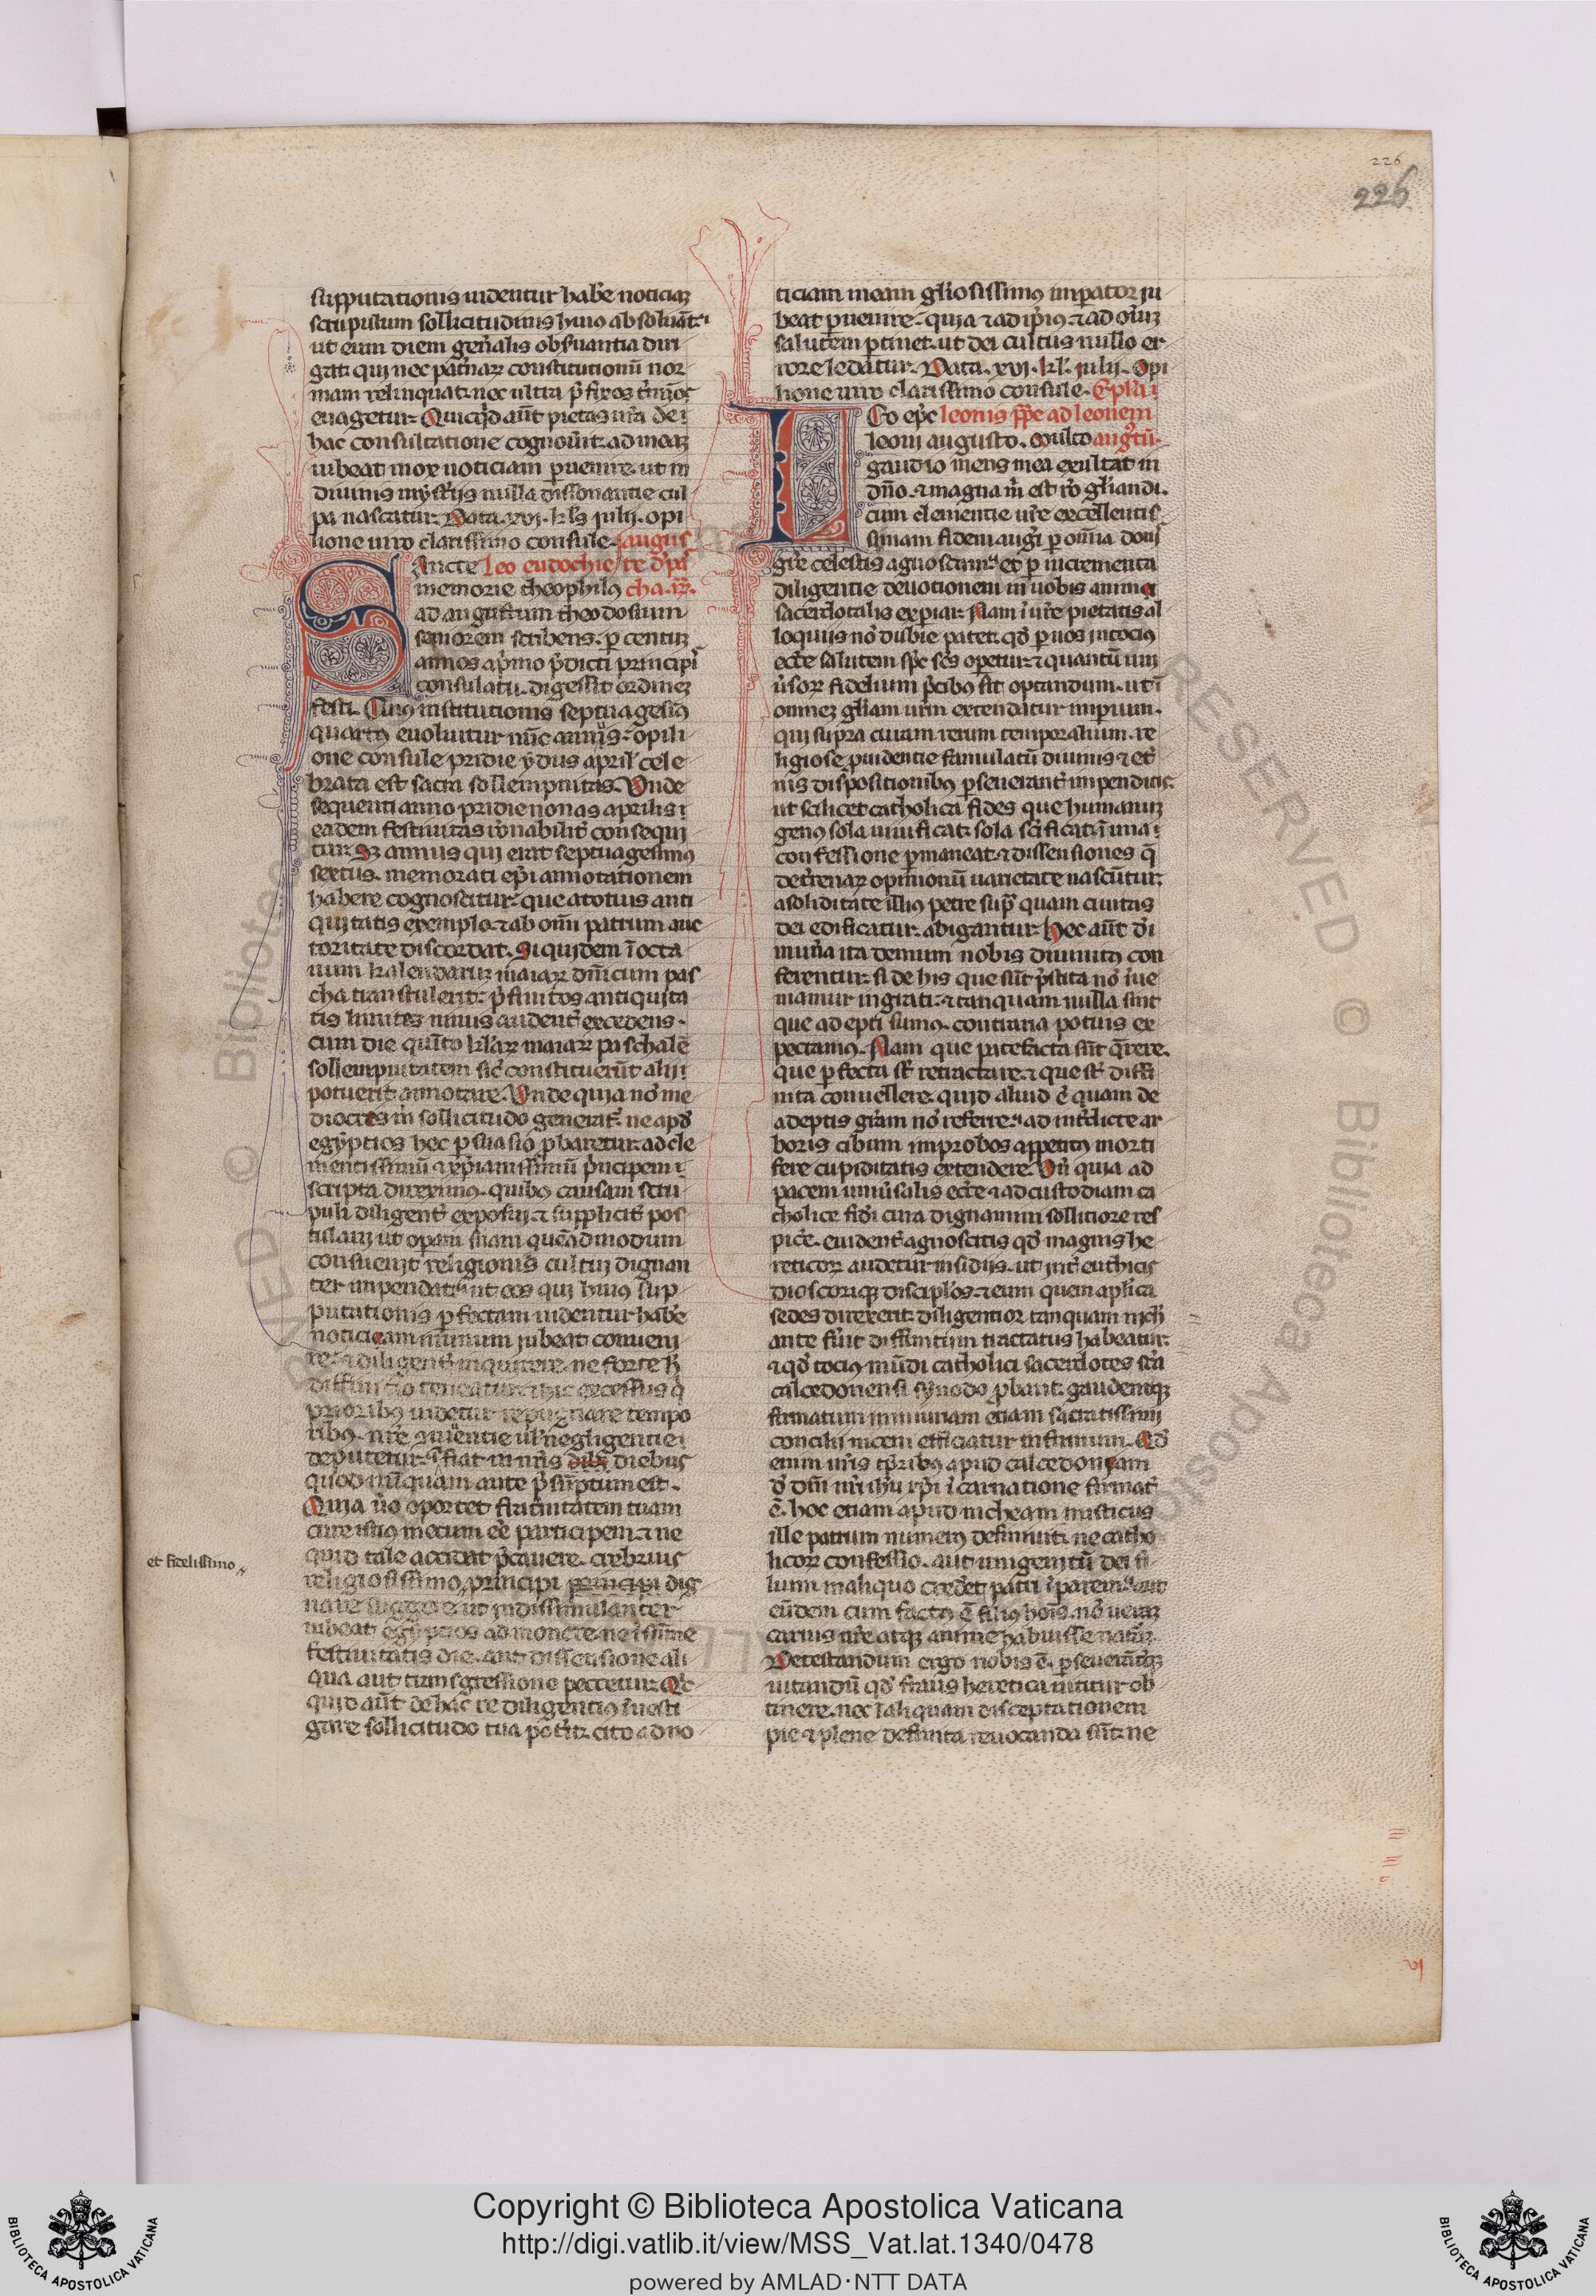 226
226
supputationis uidentur hab̄e noticiaꝫ
scrupulum sollicitudinis huiꝰ absoluāt.
ut eum diem gen̄alis obseruantia diri
gat. qui nec pat̄naꝝ constitutionū nor
mam relinquat. nec ultra p̄fixos t̄mīos
euagetur. Quicq̇d aūt pietas ur̄a de
hac consultatione cognou̇it. ad meaꝫ
iubeat mox noticiam ꝑuenire. ut in
diuinis myst̄ijs nulla dissonantie cul
pa nascatur. Data. xvj. kl̄s julij. opi
lione uiro clarissimo consule. augus
Ancte Leo eudochie te
memorie theophilꝰ
ad augustum theodosium
seniorem scribens. ꝑ centuꝫ
annos ap̄mo p̄dicti principi
consulatu. digessit ordineꝫ
festi. Cuiꝰ institutionis septuagesimꝰ
quartꝰ euoluitur nūc annus. opili
one consule pridie ydus april̄ cele
brata est sacra sollempnitas. Unde
sequenti anno pridie nonas aprilis
eadem festiuitas rōnabilit̄ consequi
tur. Sꝫ annus qui erit septuagesimus
sextus. memorati ep̄i annotationem
habere cognoscitur. que a totius anti
quitatis exemplo. et ab om̄i patrum auc
toritate discordat. Siquidem ī octa
uum kalendaruꝫ maiaꝝ dn̄icum pas
cha transtulerit. p̄finitos antiquita
tis limites nimis audent̄ excedens.
cum die quīto kl̄aꝝ maiaꝝ paschalē
sollempnitatem sic̄ constituerūt alij
potuerit annotare. Unde quia nō me
diocres in sollicitudo generat̄. ne apd̄
egyptios hec ꝑsuasio ꝓbaretur. ad cle
mentissimū et xp̄ianissimū p̄ncipem
scripta direximꝰ. quibꝰ causam scru
puli diligent̄ exposui. et supplicit̄ pos
tulaui ut operam suam quēadmodum
consueuit religionis cultui dignan
ter impendat. ut eos qui huius sup
putationis ꝑfectam uidentur hab̄e
noticiam nimium jubeat conueni
re. et diligent̄ inquirere. ne forte
diffinitio teneatur. et hic excessus q̄
prioribꝰ uidetur repugnare tempo
ribꝰ. nr̄e negligentie
deputetur. si fiat in nr̄is dilb̄ diebus
quod nūquam ante p̄sūptum est.
Quia ūo oportet firmitatem tuam
cure istiꝰ mecum eē participem. et ne
quid tale accidat p̄cauere. crebrius
religiosissimo principi principi dig
nare suggere ut indissimulanter
iubeat egyptios admonere. ne ī sūme
festiuitatis die. aut dissensione ali
qua aut transgressione peccetur. Et
quid aūt de hac re diligentiꝰ īuesti
gare sollicitudo tua pot̄it. cito ad no
et fidelissimo
ticiam meam gl̄iosissimꝰ imꝑator ju
beat ꝑuenire. quia et ad ip̄ius et ad oīuꝫ
salutem ꝑtinet. ut dei cultus nullo er
rore ledatur. Data. xvj. kl̄. julij. Opi
lione uiro clarissimo consule. Epl̄a
Eo ep̄c leonis pp̄e ad leonem
leoni augusto. Multo augustū.
gaudio mens mea exultat in
dn̄o. et magna m̄ est rō gl̄iandi.
cum clementie ur̄e excellentis
simam fidem augī ꝑ om̄ia donj
gr̄e celestis agnoscam. et ꝑ incrementa
diligentie deuotionem in uobis animi
sacerdotalis experiar. Nam ī ur̄e pietatis al
loquiis nō dubie patet. qd̄ ꝑ uos in tociꝰ
ecc̄e salutem sp̄c sc̄s opetur. et quantū uni
u̇soꝝ fidelium p̄cibꝰ sit optandum. ut ī
omneꝫ gl̄iam ur̄m extendatur imperium.
qui supra curam rerum temporalium. re
ligiose ꝓuidentie famulatū diuinis et et̄
nis dispositionibꝰ ꝑseueranter impenditis.
ut scilicet catholica fides que humanuꝫ
genꝰ sola uiuificat. sola sc̄ificat. ī una
confessione ꝑmaneat. et dissensiones q̄
de t̄renaꝝ opinionū uarietate nascūtur.
a soliditate illiꝰ petre sup̄ quam ciuitas
dei edificatur. abigantur. Hec aūt dī
mun̄a ita demum nobis diuinitꝰ con
ferentur. si de his que sūt p̄stita nō īue
niamur ingrati. et tanquam nulla sint
que adepti sumꝰ. contraria potius ex
pectamꝰ. Nam que patefacta sūt q̄rere.
que ꝑfecta st̄ retractare. et que st̄ diffi
nita conuellere. quid aliud ē quam de
adeptis gr̄am nō referre. et ad int̄dicte ar
boris cibum improbos appetitꝰ morti
fere cupiditatis extendere. Uñ quia ad
pacem uniu̇salis ecc̄e et ad custodiam ca
tholice fidei cura dignamini sollitiore res
pic̄e. euident̄ agnoscitis qd̄ magnis he
reticoꝝ audetur insidijs. ut int̄ euthicis
dioscoriqꝫ discipl̄os. et eum quem apl̄ica
sedes direxerit. diligentior tanquam nich̄
ante fūit diffinitum tractatus habeatur.
et qd̄ tociꝰ mūdi catholici sacerdotes sc̄a
calcedonensi synodo ꝓbant. gaudentqꝫ
firmatum in iniuriam etiam sacratissimi
concilij niceni efficiatur infirmum. Qd̄
enim nr̄is tp̄ribꝰ apud calcedoniam
d̄ dn̄i nr̄i ih̄u xp̄i īcarnatione firmat̄
ē. hoc etiam apud nicheam misticus
ille patrum numerꝰ definiuit. ne catho
licoꝝ confessio. aut unigenitū dei fi
lium in aliquo cred̄et patri īparem. aut
eūdem cum factꝰ ē filiꝰ hoīs. nō ueraꝫ
carnis nr̄e atqꝫ anime habuisse nat̄aꝫ.
Detestandum ergo nobis ē. ꝑseueranterqꝫ
uitandū qd̄ fraus heretica nititur ob
tinere. nec ī aliquam disceptationem
pie et plene definita reuocanda sūt. ne
Copyright © Biblioteca Apostolica Vaticana
http://digi.vatlib.it/view/MSS_Vat.lat.1340/0478
powered by AMLAD·NTT DATA
BIBLIOTECA APOSTOLICA VATICANA
BIBLIOTECA APOSTOLICA VATICANA